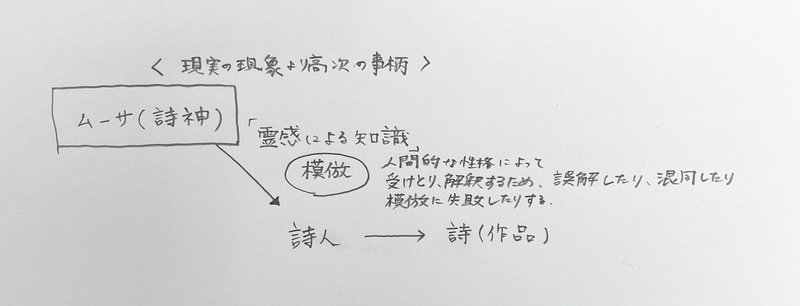 〈 現実の現象より高次の事柄 〉
ムーサ(詩神)
「霊感による知識」
模倣
人間的な性格によって
受けとり、解釈するため、誤解したり、混同したり
模倣に失敗したりする。
詩人 → 詩(作品)